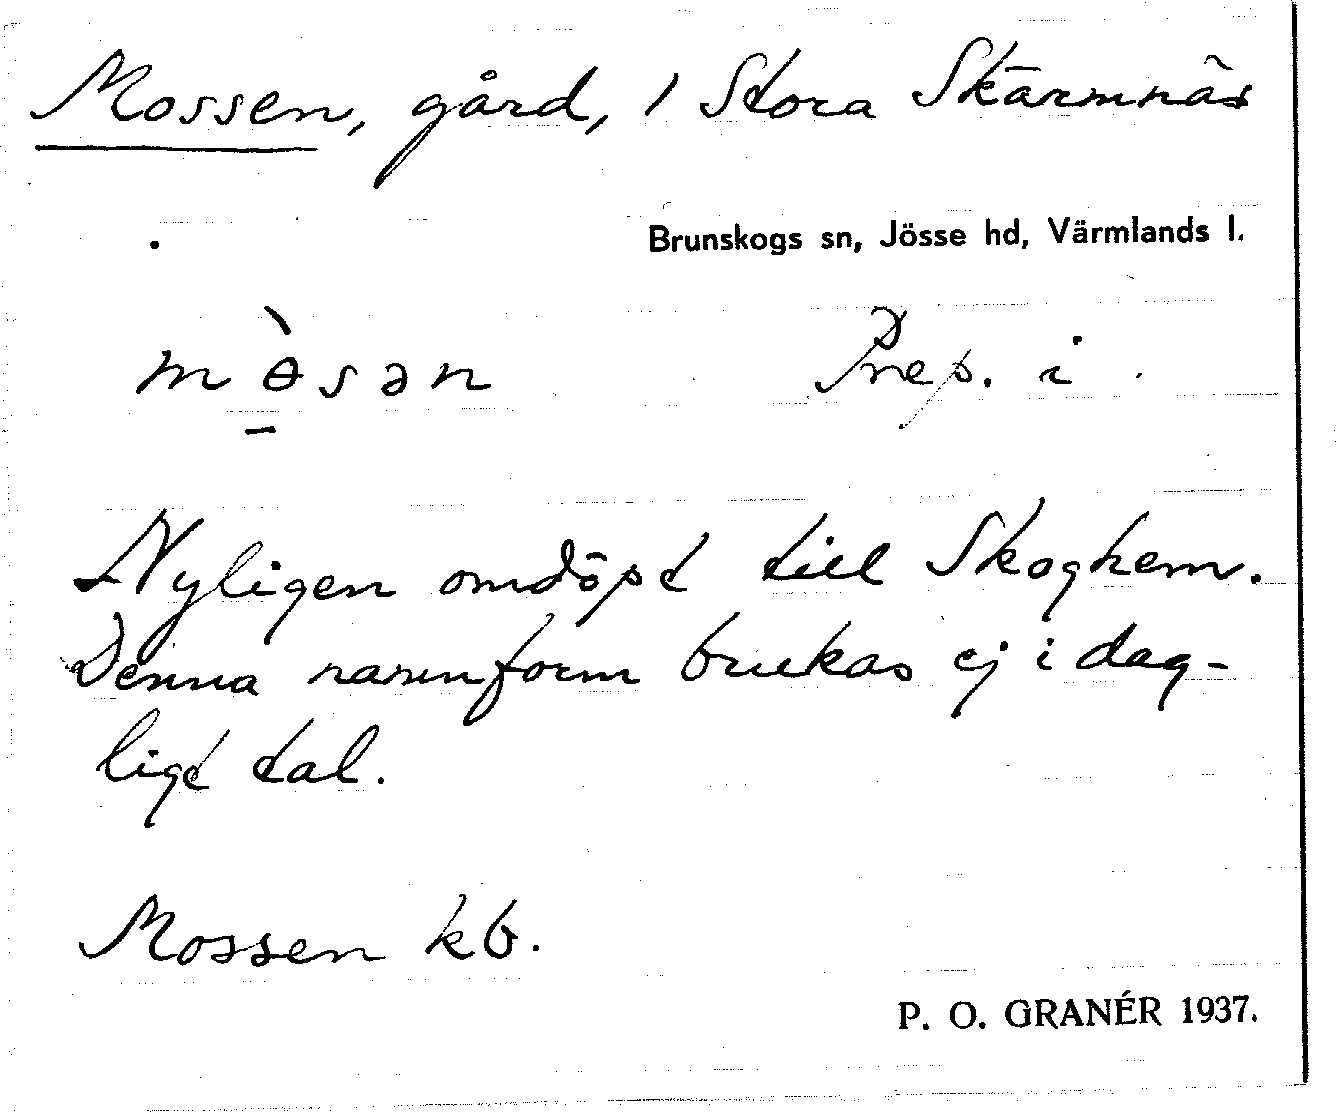 Mossen, gård, / Stora Skärmnäs
Brunskogs sn, Jösse hd, Värmlands l.
mɵ̠̀sən Prep. i
Nyligen omdöpt till Skoghem.
Denna namnform brukas ej i dag-
ligt tal.
Mossen kb.
P. O. GRANÉR 1937.